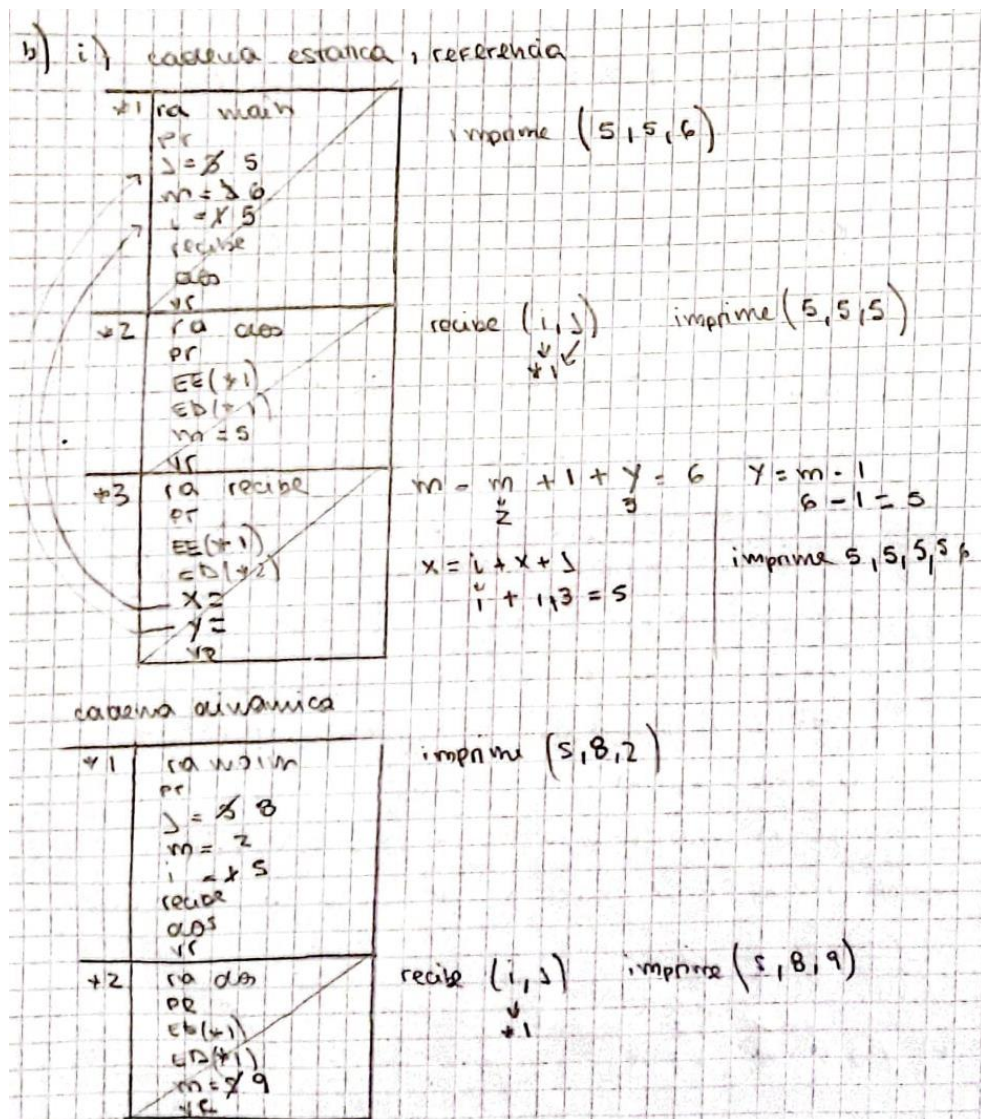 b) i) cadena estatica, referencia
*1 ra main
pr
J = 3 5
m = 2 6
i = 1 5
recibe
dos
vr
imprime (5, 5, 6)
*2 ra dos
pr
EE(*1)
ED(*1)
m = 5
vr
recibe (i, J) imprime (5, 5, 5)
*1
*3 ra recibe
pr
EE(*1)
ED(*2)
x =
y =
vr
m = m + 1 + y = 6 y = m - 1
2 3 6 - 1 = 5
x = i + x + J imprime 5, 5, 5, 5 6
1 + 1, 3 = 5
cadena dinamica
*1 ra main
pr
J = 3 8
m = 2
i = 1 5
recibe
dos
vr
imprime (5, 8, 2)
*2 ra dos
PR
ED(*1)
m = 5 9
vr
recibe (i, J) imprime (5, 8, 9)
*1